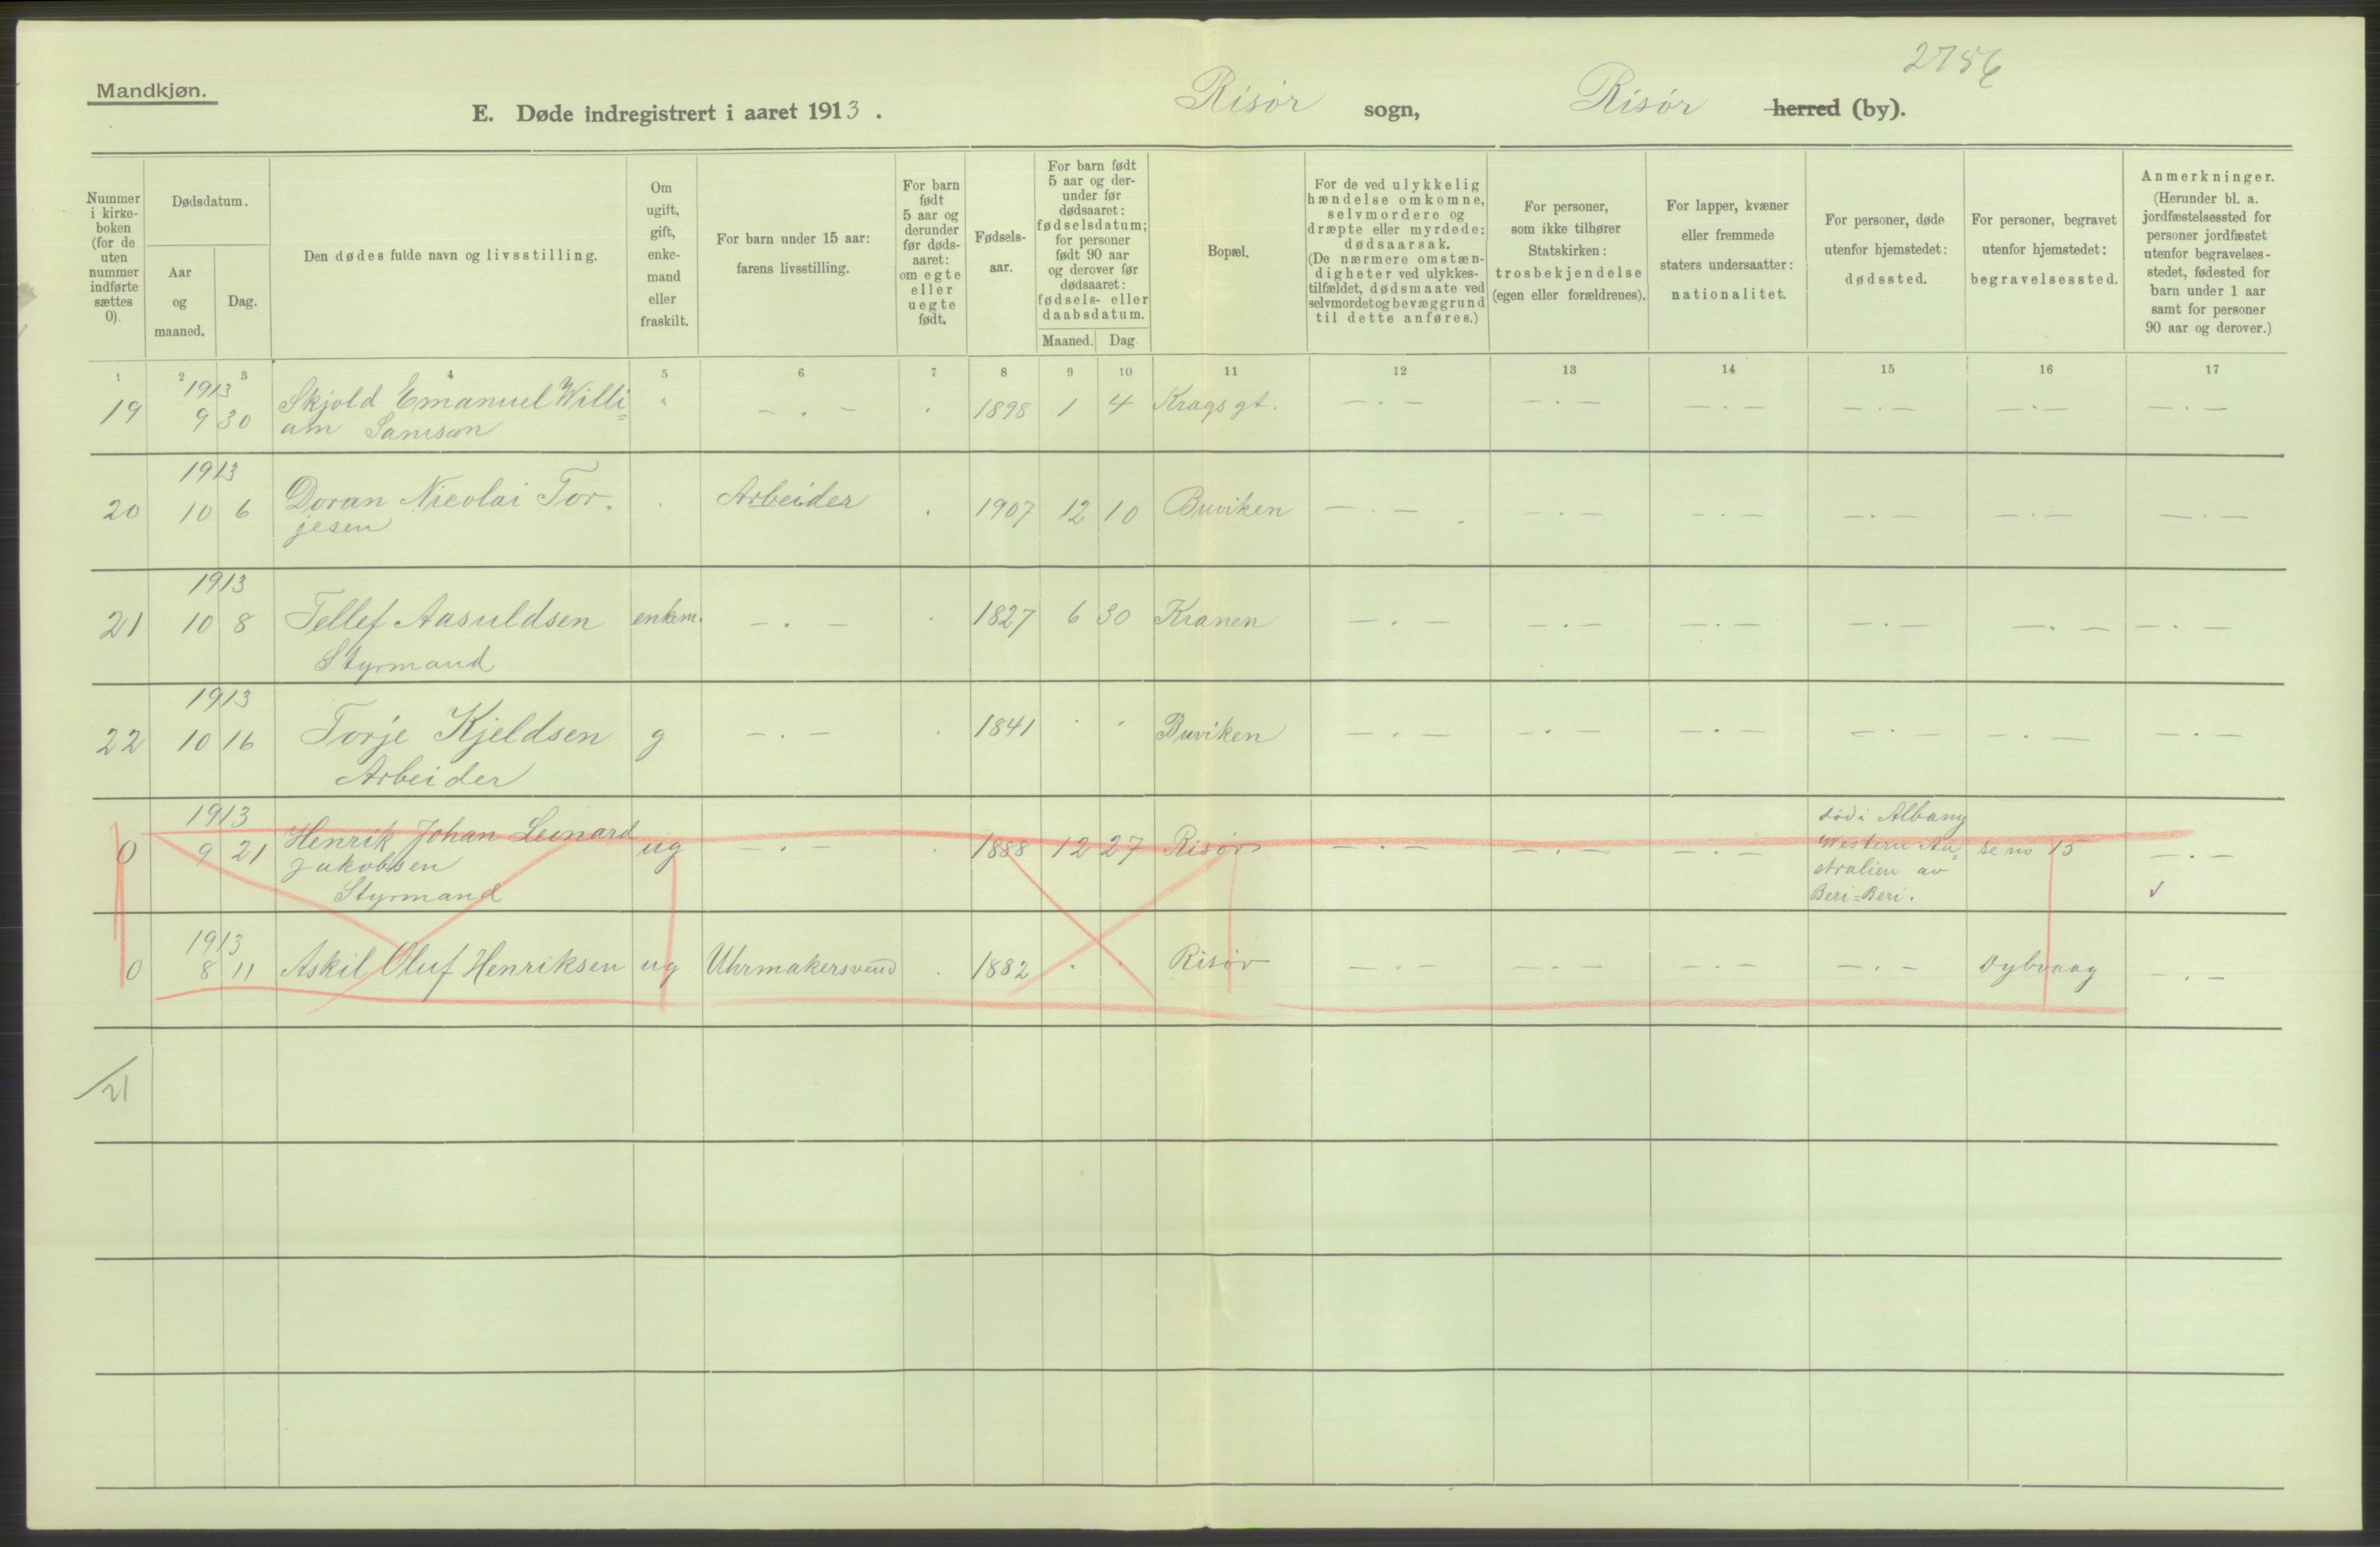 2756
Mandkjøn.
E. Døde indregistrert i aaret 1913. Risør sogn, Risør herred (by).
Nummer i kirke- boken (for de uten nummer indførte sættes 0).
Dødsdatum.
Aar og maaned.
Dag.
Den dødes fulde navn og livsstilling.
Om ugift, gift, enke- mand eller fraskilt.
For barn under 15 aar: farens livsstilling.
For barn født 5 aar og derunder før døds- aaret: om egte eller uegte født.
Fødsels- aar.
For barn født 5 aar og der- under før dødsaaret: fødselsdatum; for personer født 90 aar og derover før dødsaaret: fødsels- eller daabsdatum.
Maaned. Dag.
Bopæl.
For de ved ulykkelig hændelse omkomne, selvmordere og dræpte eller myrdede: dødsaarsak. (De nærmere omstæn- digheter ved ulykkes- tilfældet, dødsmaate ved selvmordet og bevæggrund til dette anføres.)
For personer, som ikke tilhører Statskirken: trosbekjendelse (egen eller forældrenes).
For lapper, kvæner eller fremmede staters undersaatter: nationalitet.
For personer, døde utenfor hjemstedet: dødssted.
For personer, begravet utenfor hjemstedet: begravelsessted.
Anmerkninger. (Herunder bl. a. jordfæstelsessted for personer jordfæstet utenfor begravelses- stedet, fødested for barn under 1 aar samt for personer 90 aar og derover.)
1 2 3 4 5 6 7 8 9 10 11 12 13 14 15 16 17
1913
19 9 30 Skjold Emanuel Willi= " — . — . 1898 1 4 Kragsgt. — . — — . — — . — — . — — . — — . —
am Samson
1913
20 10 6 Doran Nicolai Tor- . Arbeider . 1907 12 10 Buviken — . — — . — — . — — . — — . — — . —
jesen
1913
21 10 8 Tellef Aasuldsen enkem. — . — . 1827 6 30 Kranen — . — — . — — . — — . — — . — — . —
Styrmand
1913
22 10 16 Torje Kjeldsen g — . — . 1841 . . Buviken — . — — . — — . — — . — — . — — . —
Arbeider
1913
0 9 21 Henrik Johan Leonard ug — . — . 1888 12 27 Risør — . — — . — — . — død i Albany se no 15 — . —
Jakobsen Western Au=
Styrmand stralien av
Beri=Beri. ✓
1913
0 8 11 Askil Oluf Henriksen ug Uhrmakersvend . 1882 . . Risør — . — — . — — . — — . — Dybvaag — . —
/21